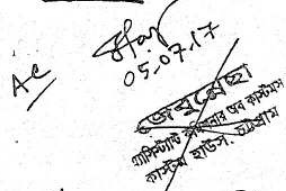 AC
05.07.17
জেবুন্নেছা
এ্যাসিস্ট্যান্ট কমিশনার অব কাস্টমস
কাস্টম হাউস, চট্টগ্রাম